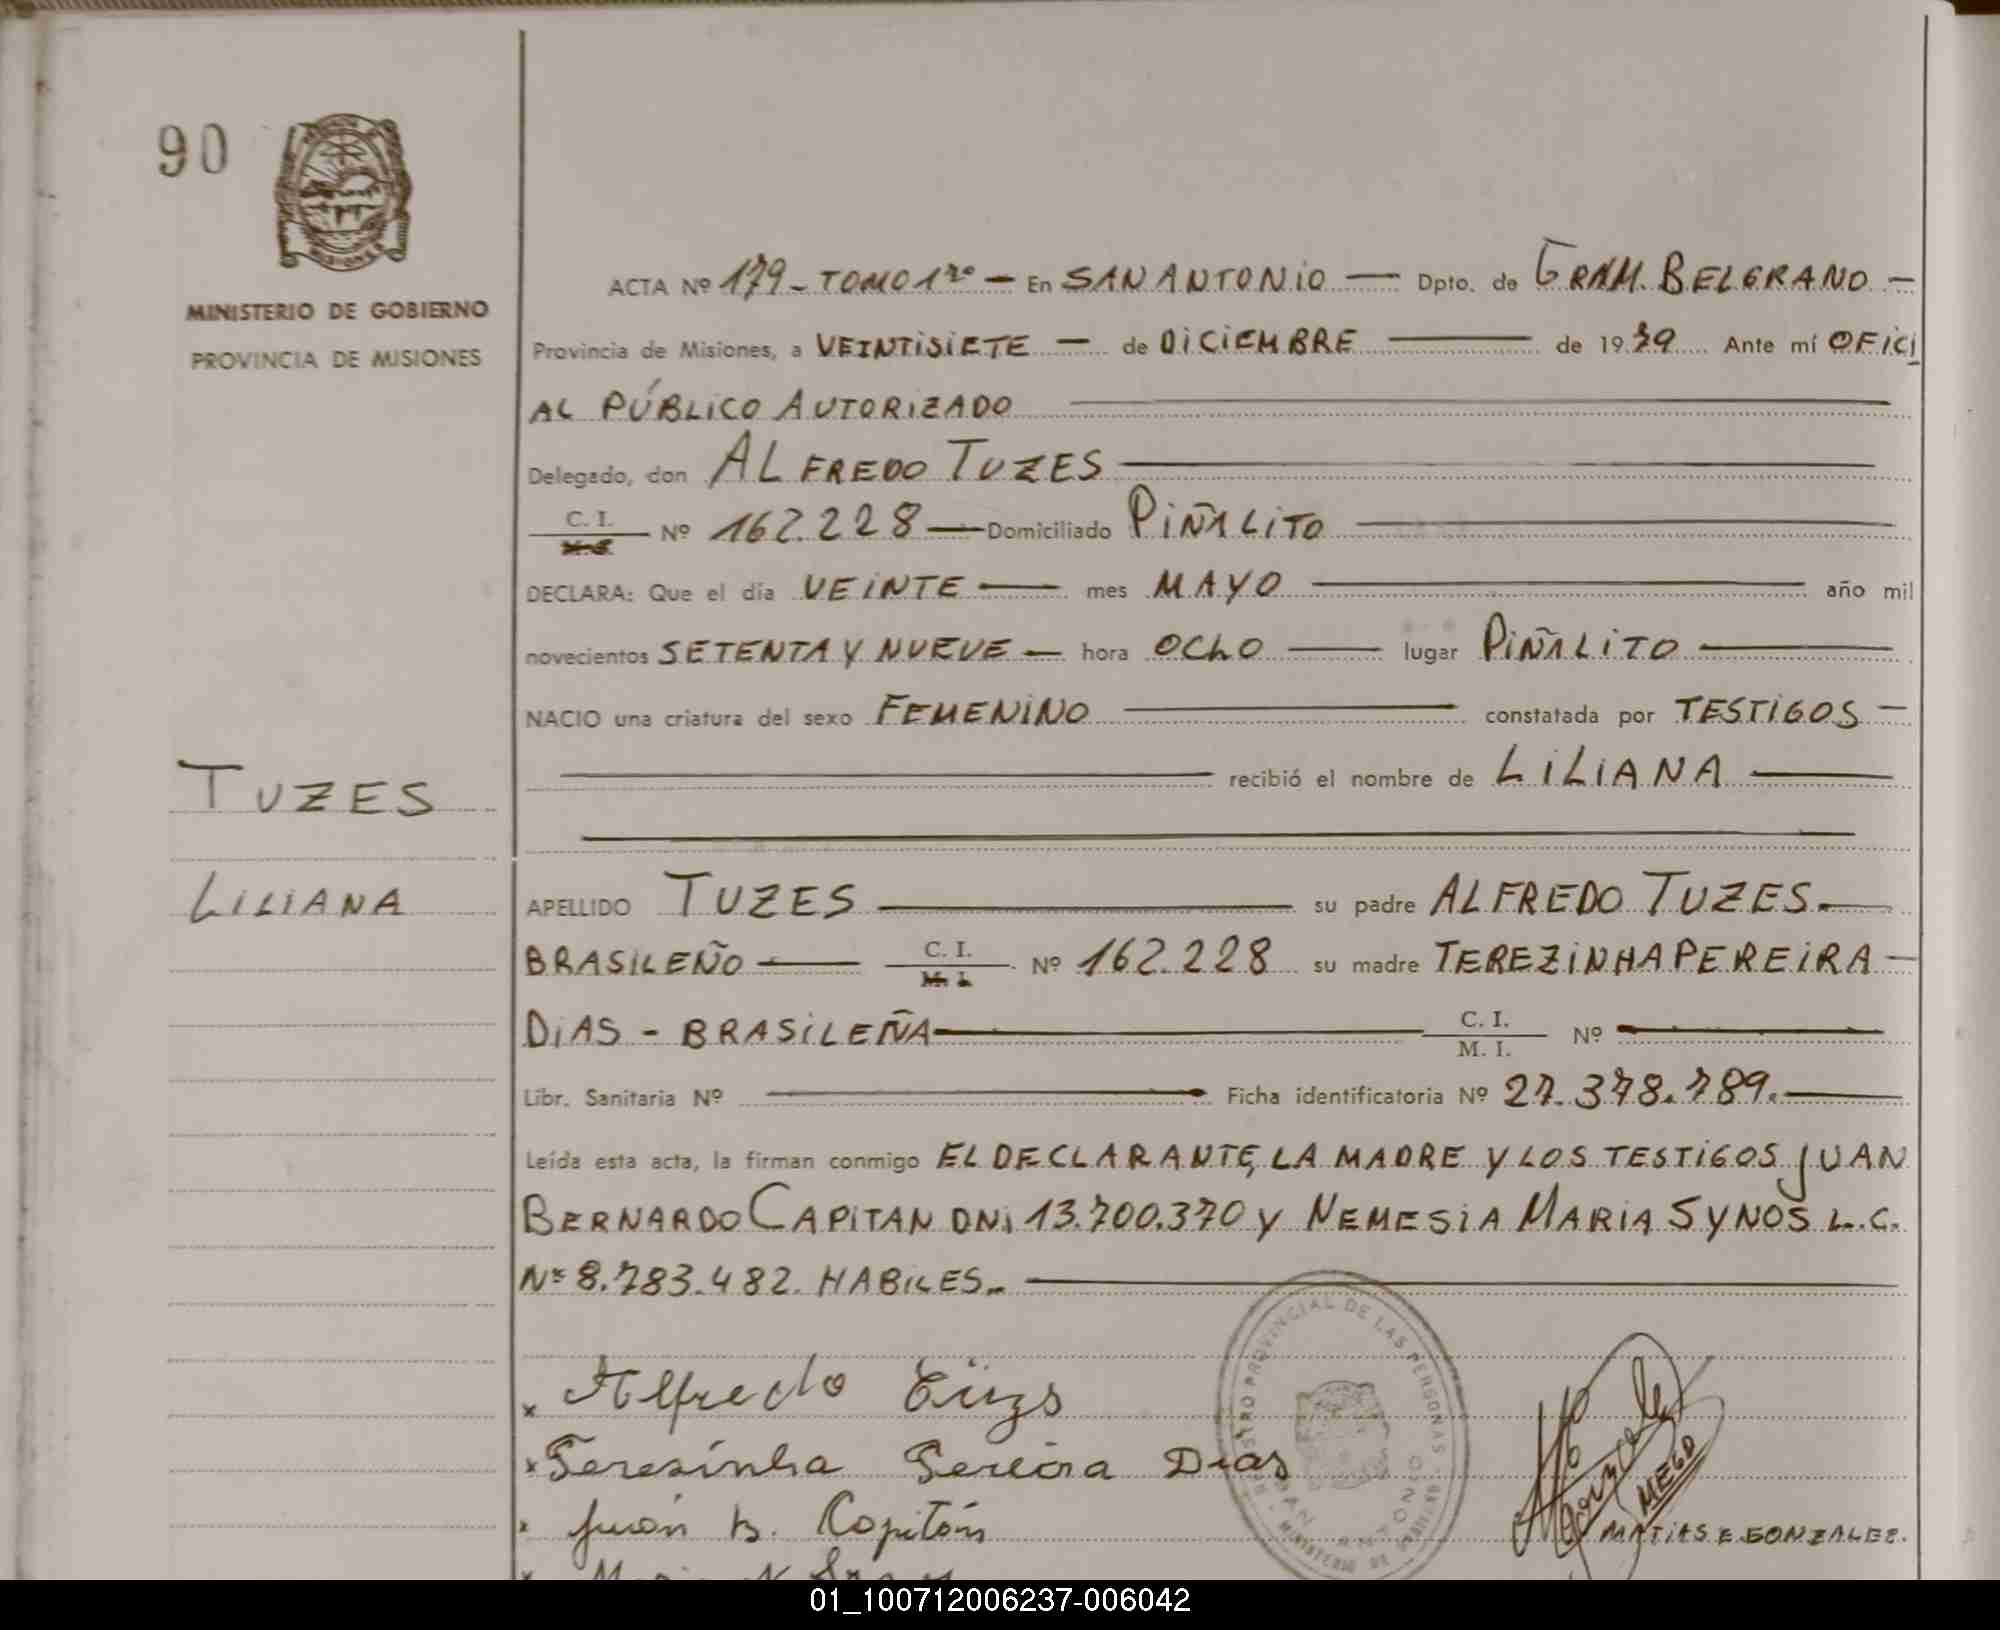 90
MINISTERIO DE GOBIERNO
PROVINCIA DE MISIONES
ACTA Nº 179 - TOMO 1ro - En SAN ANTONIO - Dpto. de GRAM. BELGRANO -
Provincia de Misiones, a VEINTISIETE - de DICIEMBRE - de 1979 Ante mí OFICI
AL PÚBLICO AUTORIZADO
Delegado, don ALFREDO TUZES
C. I. Nº 162.228 - Domiciliado PIÑALITO
DECLARA: Que el día VEINTE - mes MAYO - año mil
novecientos SETENTA Y NUEVE - hora OCHO - lugar PIÑALITO
NACIO una criatura del sexo FEMENINO - constatada por TESTIGOS -
recibió el nombre de LILIANA
TUZES
LILIANA
APELLIDO TUZES - su padre ALFREDO TUZES.
BRASILEÑO - C. I. Nº 162.228 su madre TEREZINHA PEREIRA -
DIAS - BRASILEÑA - C. I. M. I. Nº
Libr. Sanitaria Nº - Ficha identificatoria Nº 27.378.789.
Leída esta acta, la firman conmigo EL DECLARANTE, LA MADRE Y LOS TESTIGOS JUAN
BERNARDO CAPITAN DNI 13.700.370 Y NEMESIA MARIA SYNOS L.C.
Nº 8.783.482. HABILES.
REGISTRO PROVINCIAL DE LAS PERSONAS
SAN ANTONIO
MINISTERIO DE GOBIERNO
x Alfredo Tüzs
x Teresinha Pereira Dias
x Juan B. Capitán
MATIAS E GONZALEZ.
01_100712006237-006042